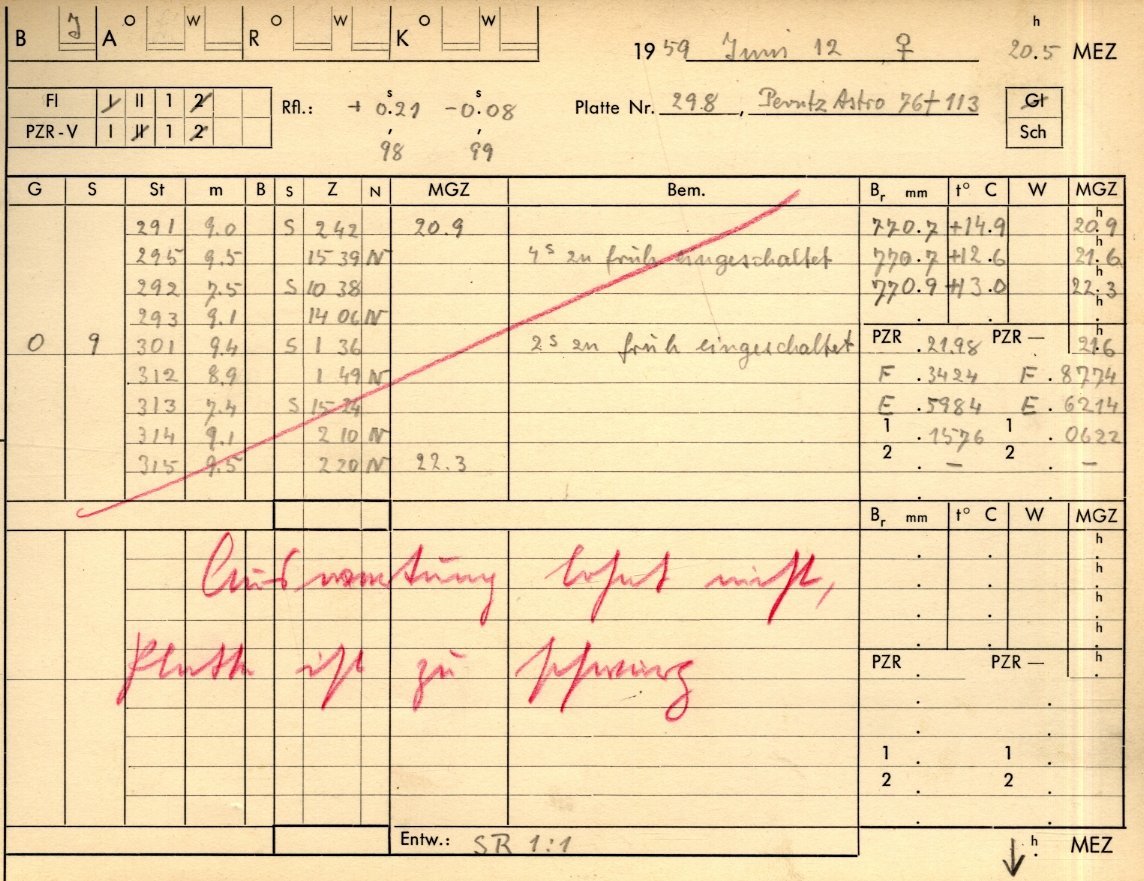 B J A O W R O W K O W
1959 Juni 12 ♀ 20.5 h MEZ
Fl I II 1 2
PZR-V I II 1 2
Rfl.: + 0.21 s -0.08 s
98 99
Platte Nr. 298, Perutz Astro 76+113
Gl
Sch
G S St m B S Z N MGZ Bem. Br mm t° C W MGZ
291 9.0 S 2 42 20.9 770.7 +14.9 20.9 h
295 9.5 15 39 N 4s zu früh eingeschaltet 770.7 +12.6 21.6 h
292 7.5 S 10 38 770.9 +13.0 22.3 h
293 9.1 14 06 N h
0 9 301 9.4 S 1 36 2s zu früh eingeschaltet PZR .2198 PZR — 21.6 h
312 8.9 1 49 N F .3424 F .8774
313 7.4 S 15 24 E .5984 E .6214
314 9.1 2 10 N 1 .1576 1 .0622
315 9.5 2 20 N 22.3 2 – 2 –
Br mm t° C W MGZ
h
h
h
h
Auswertung lohnt nicht,
Platte ist zu schwarz
PZR PZR — h
1 1
2 2
Entw.: SR 1:1
↓ h MEZ